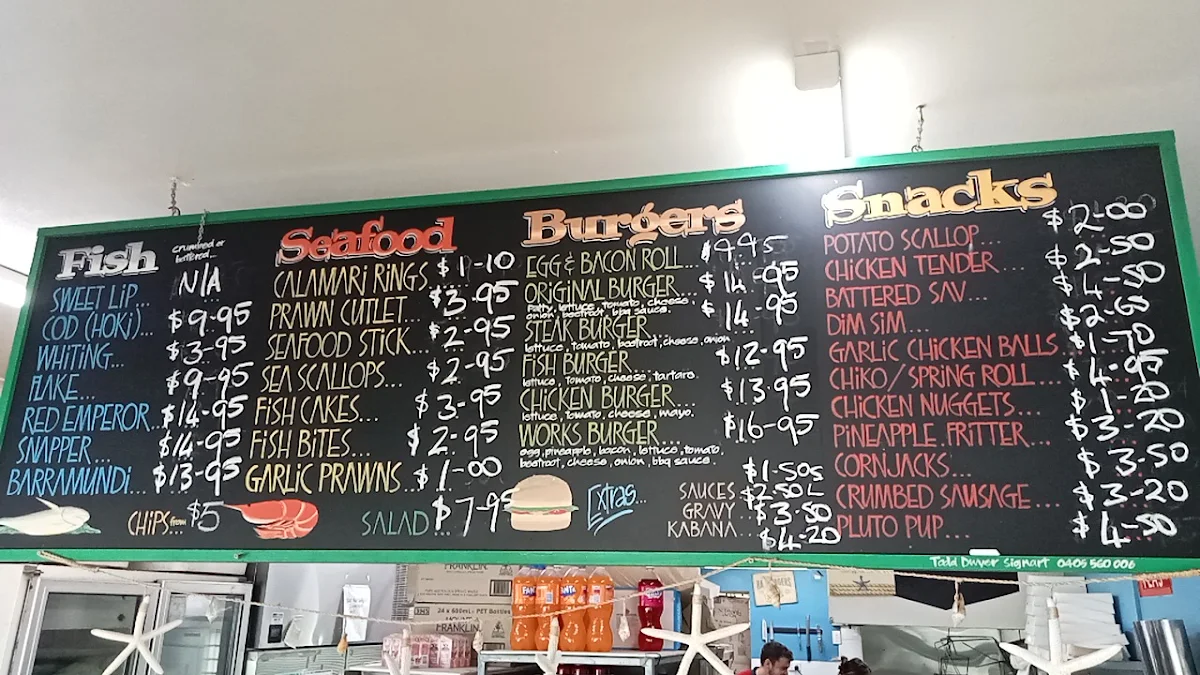 Fish
crumbed or
battered...
SWEET LIP... N/A
COD (HOKI)... $9-95
WHITING... $3-95
FLAKE... $9-95
RED EMPEROR... $14-95
SNAPPER... $14-95
BARRAMUNDI... $13-95
CHIPS from $5
Seafood
CALAMARI RINGS $1-10
PRAWN CUTLET... $3-95
SEAFOOD STICK... $2-95
SEA SCALLOPS... $2-95
FISH CAKES... $3-95
FISH BITES... $2-95
GARLIC PRAWNS... $1-00
SALAD $7-95
Burgers
EGG & BACON ROLL...
ORIGINAL BURGER... $14-95
Patty, lettuce, tomato, cheese,
onion, beetroot, bbq sauce.
STEAK BURGER $14-95
lettuce, tomato, beetroot, cheese, onion
FISH BURGER... $12-95
lettuce, tomato, cheese, tartare.
CHICKEN BURGER... $13-95
lettuce, tomato, cheese, mayo.
WORKS BURGER... $16-95
egg, pineapple, bacon, lettuce, tomato,
beetroot, cheese, onion, bbq sauce.
Extras...
SAUCES $1-50s
$2-50L
GRAVY $3-50
KABANA... $4-20
Snacks
POTATO SCALLOP... $2-00
CHICKEN TENDER... $2-50
BATTERED SAV... $4-50
DIM SIM...
GARLIC CHICKEN BALLS $1-70
CHIKO/SPRING ROLL... $4-95
CHICKEN NUGGETS... $1-20
PINEAPPLE FRITTER... $3-20
CORNJACKS... $3-50
CRUMBED SAUSAGE... $3-20
PLUTO PUP... $4-50
Todd Dwyer Signart 0405 560 006
FRANKLIN
24 x 600mL PET Bottles
FRANKLIN